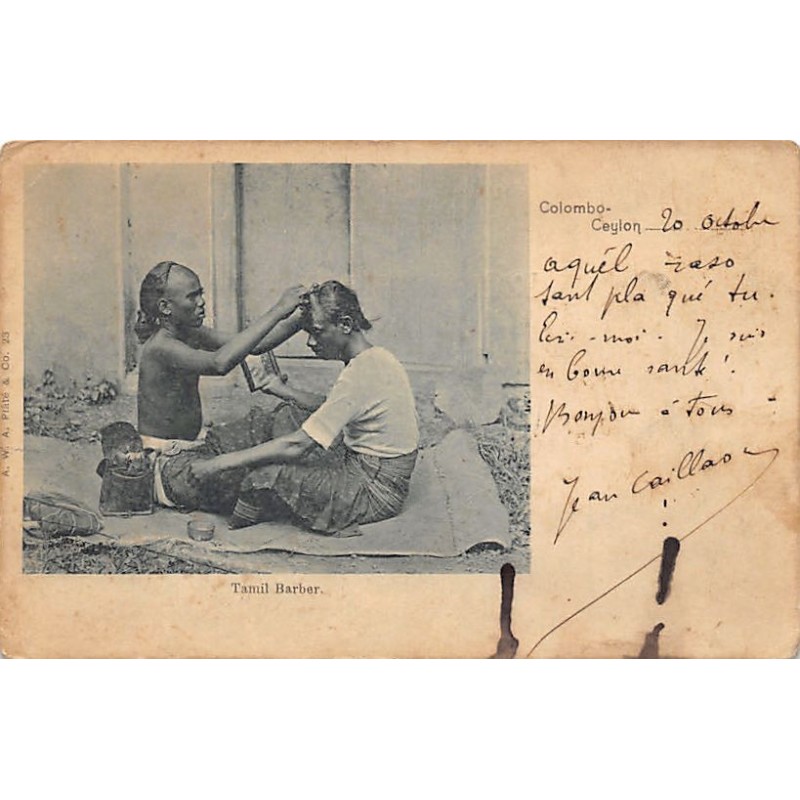 Colombo-
Ceylon 20 octobre
aquél raso
tant pla qué tu.
Ecri-moi. Je suis
en bonne santé!
Bonjour à tous
Jean Caillaou
!
A. W. A. Plâté & Co. 23
Tamil Barber.